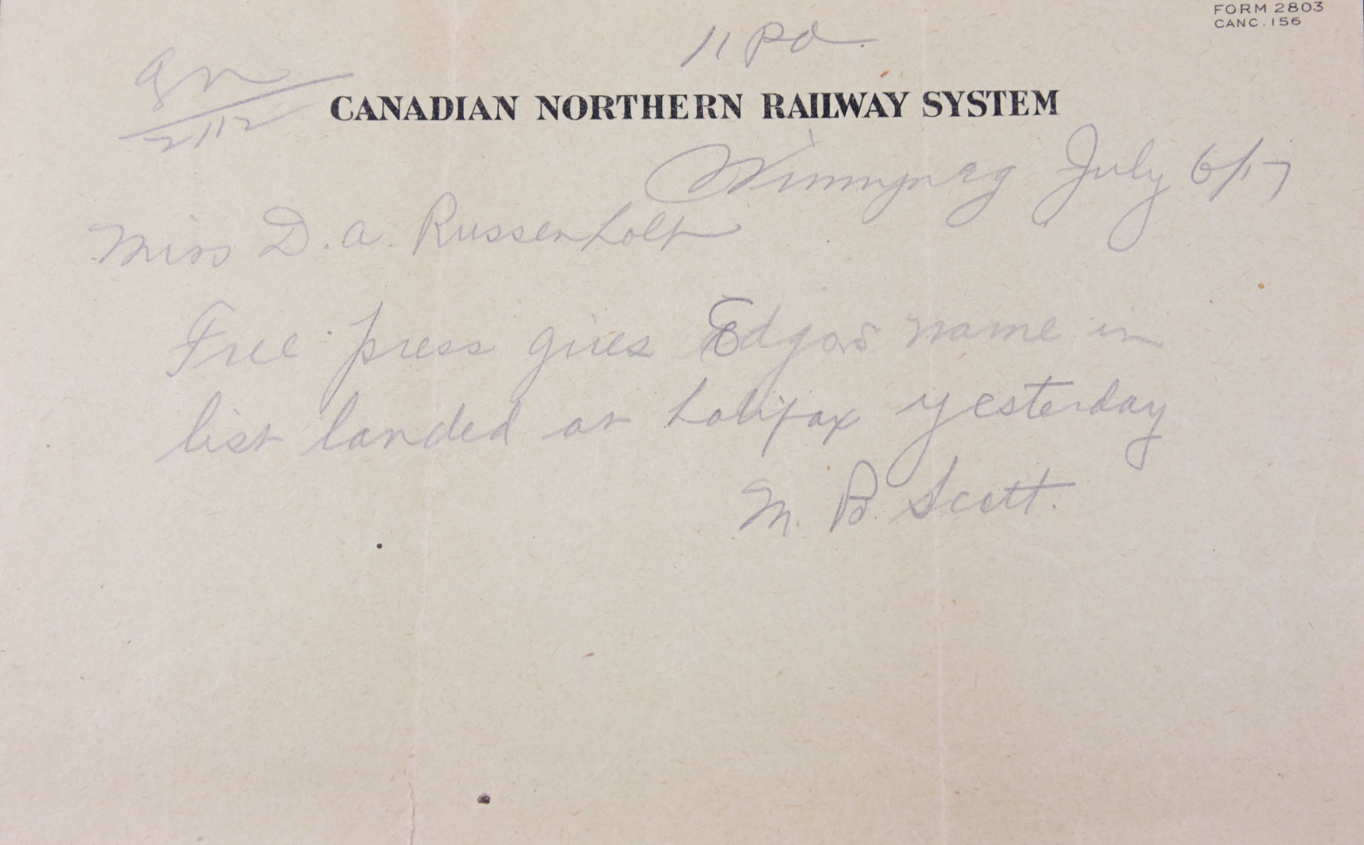 FORM 2803
CANC. 156
11 Pd
CANADIAN NORTHERN RAILWAY SYSTEM
Winnipeg July 6/17
Miss D. A. Russenholt
Free press gives Edgars name in
list landed at halifax yesterday
M. B. Scott.